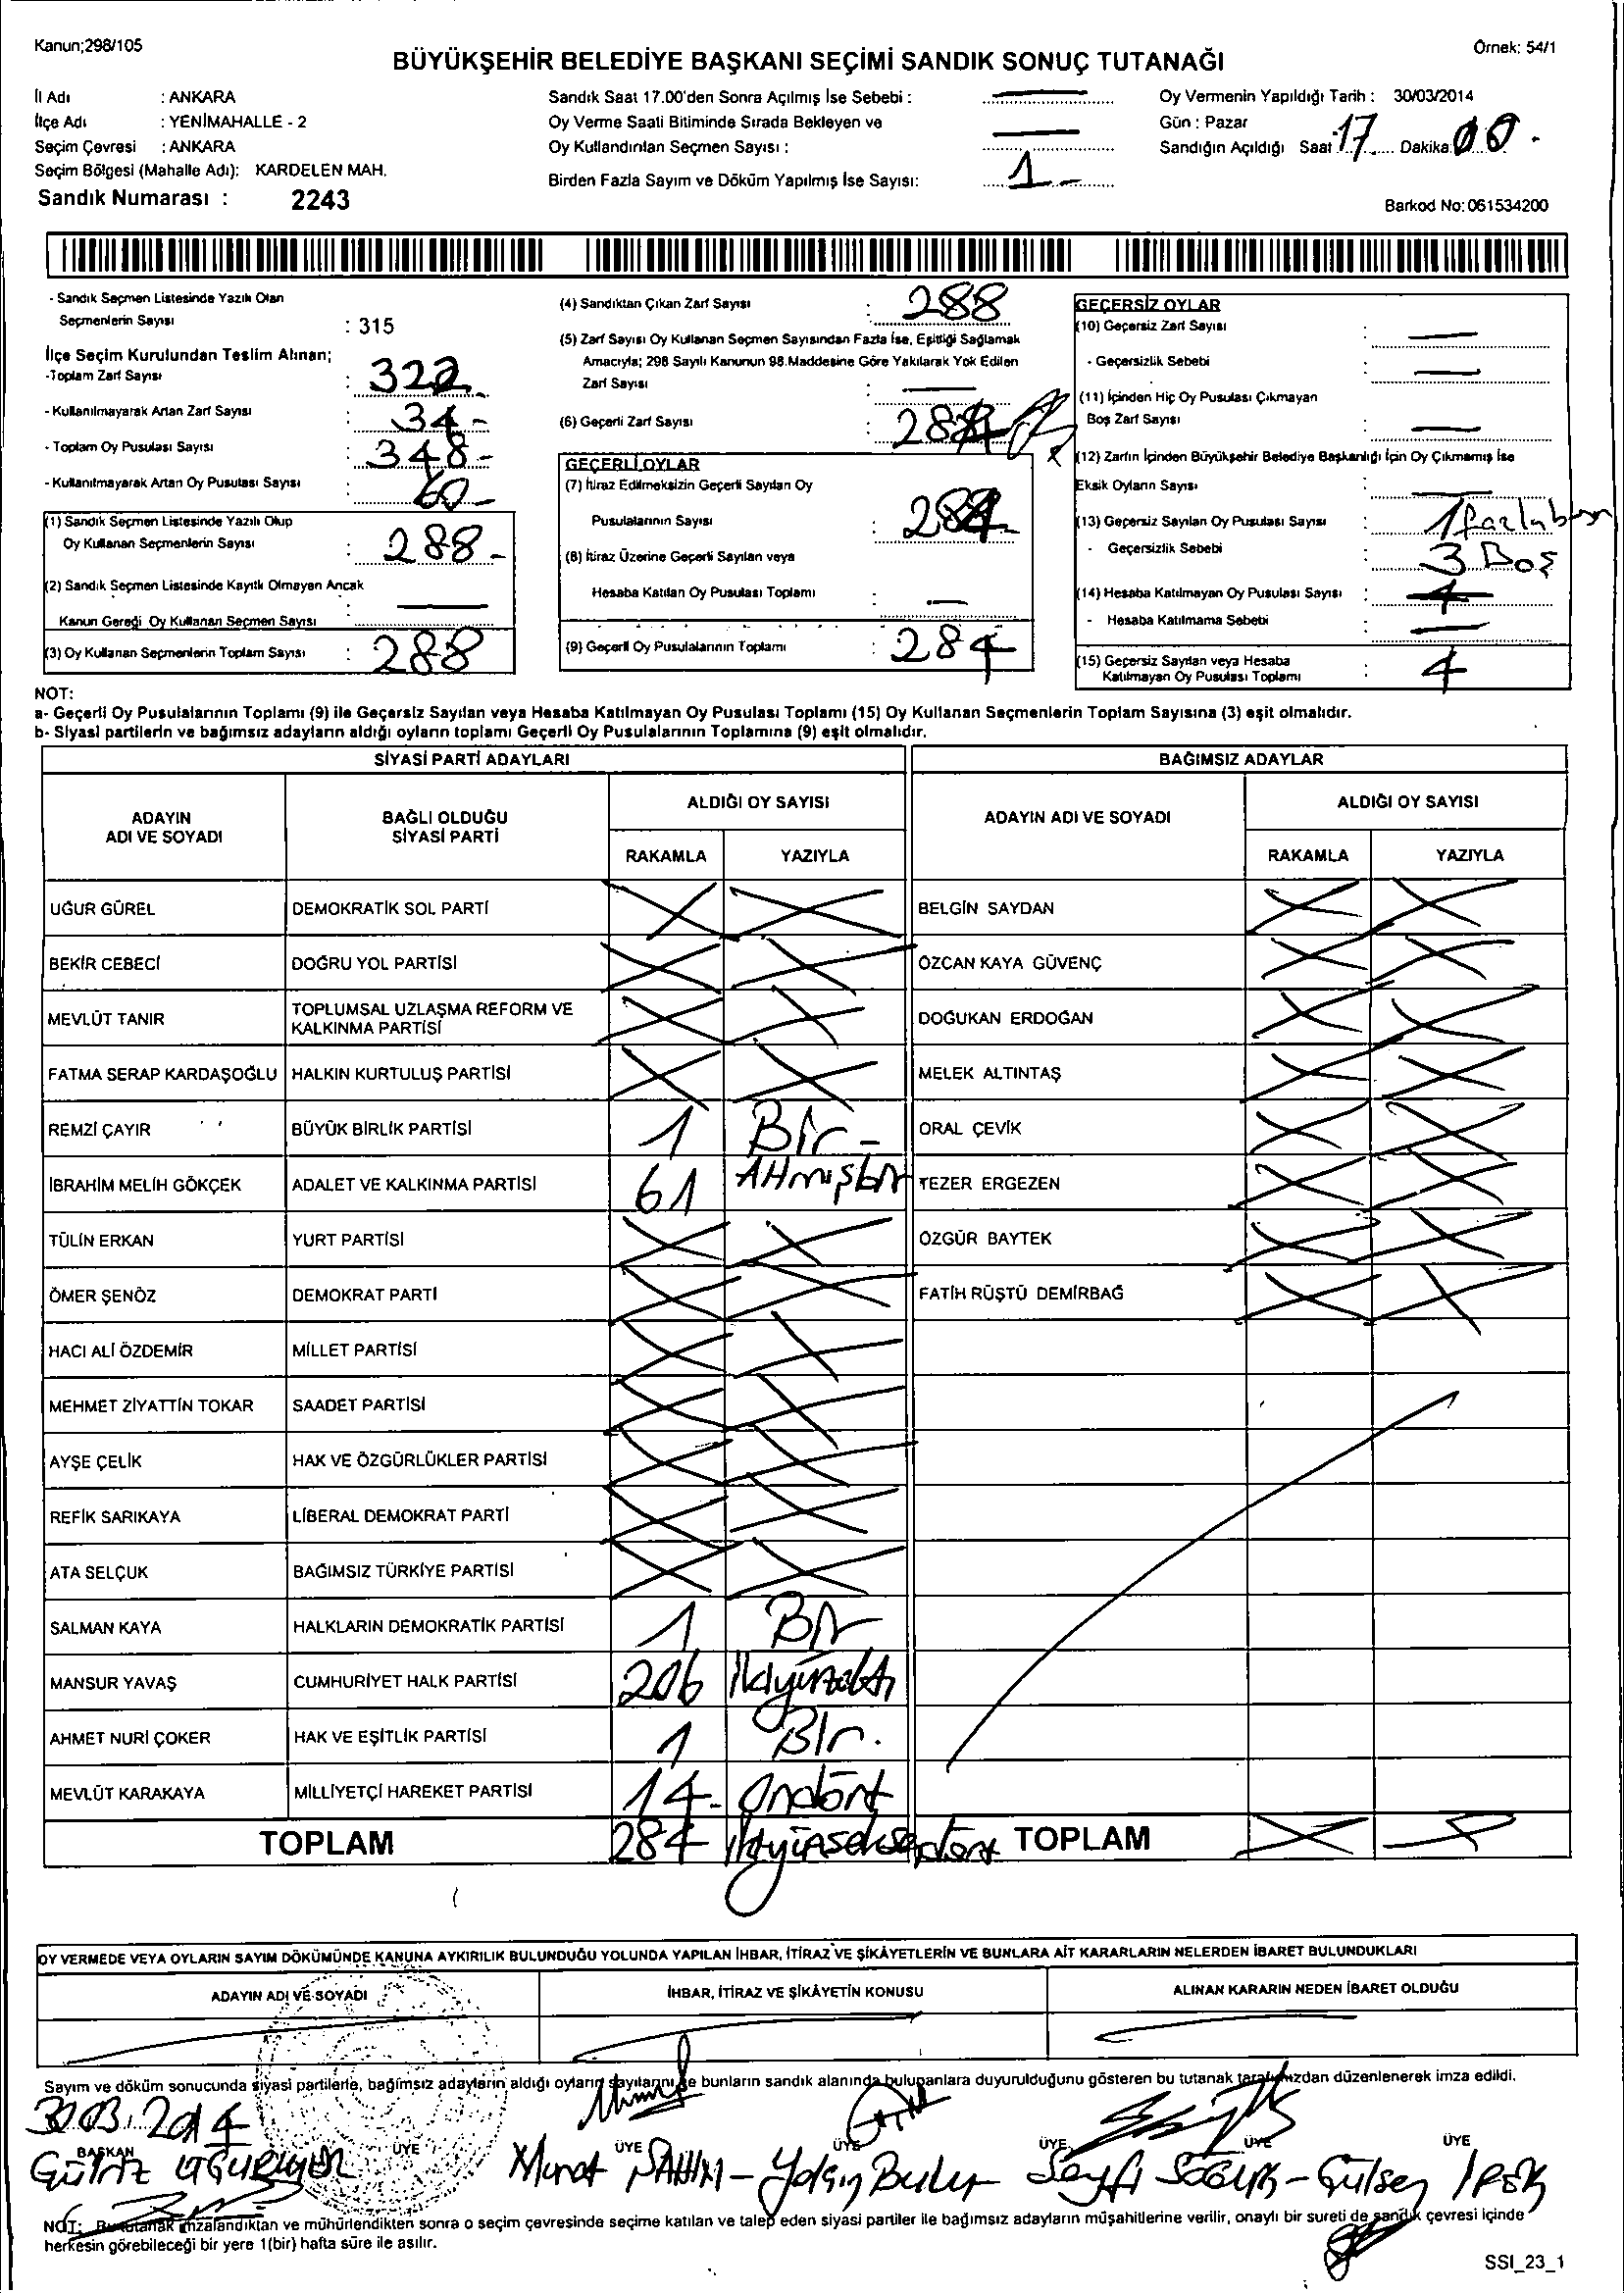 Kanun;298/105
Örnek: 54/1
BÜYÜKŞEHİR BELEDİYE BAŞKANI SEÇİMİ SANDIK SONUÇ TUTANAĞI
İl Adı : ANKARA
İlçe Adı : YENİMAHALLE - 2
Seçim Çevresi : ANKARA
Seçim Bölgesi (Mahalle Adı): KARDELEN MAH.
Sandık Numarası : 2243
Sandık Saat 17.00'den Sonra Açılmış İse Sebebi : —
Oy Verme Saati Bitiminde Sırada Bekleyen ve
Oy Kullandırılan Seçmen Sayısı : —
Birden Fazla Sayım ve Döküm Yapılmış İse Sayısı: 1 -
Oy Vermenin Yapıldığı Tarih : 30/03/2014
Gün : Pazar
Sandığın Açıldığı Saat 17 Dakika: 00 -
Barkod No: 061534200
- Sandık Seçmen Listesinde Yazılı Olan
Seçmenlerin Sayısı : 315
İlçe Seçim Kurulundan Teslim Alınan;
-Toplam Zarf Sayısı : 322
- Kullanılmayarak Artan Zarf Sayısı : 34 -
- Toplam Oy Pusulası Sayısı : 348 -
- Kullanılmayarak Artan Oy Pusulası Sayısı : 60 -
(1) Sandık Seçmen Listesinde Yazılı Olup
Oy Kullanan Seçmenlerin Sayısı : 288 -
(2) Sandık Seçmen Listesinde Kayıtlı Olmayan Ancak
Kanun Gereği Oy Kullanan Seçmen Sayısı : —
(3) Oy Kullanan Seçmenlerin Toplam Sayısı : 288
(4) Sandıktan Çıkan Zarf Sayısı : 288
(5) Zarf Sayısı Oy Kullanan Seçmen Sayısından Fazla İse, Eşitliği Sağlamak
Amacıyla; 298 Sayılı Kanunun 98.Maddesine Göre Yakılarak Yok Edilen
Zarf Sayısı : —
(6) Geçerli Zarf Sayısı :
GEÇERLİ OYLAR
(7) İtiraz Edilmeksizin Geçerli Sayılan Oy
Pusulalarının Sayısı : 284
(8) İtiraz Üzerine Geçerli Sayılan veya
Hesaba Katılan Oy Pusulası Toplamı : —
(9) Geçerli Oy Pusulalarının Toplamı : 284
GEÇERSİZ OYLAR
(10) Geçersiz Zarf Sayısı : —
- Geçersizlik Sebebi : —
(11) İçinden Hiç Oy Pusulası Çıkmayan
Boş Zarf Sayısı : —
(12) Zarfın İçinden Büyükşehir Belediye Başkanlığı İçin Oy Çıkmamış İse
Eksik Oyların Sayısı : —
(13) Geçersiz Sayılan Oy Pusulası Sayısı : 1 fazla
- Geçersizlik Sebebi : 3 Boş
(14) Hesaba Katılmayan Oy Pusulası Sayısı :
- Hesaba Katılmama Sebebi : —
(15) Geçersiz Sayılan veya Hesaba
Katılmayan Oy Pusulası Toplamı : 4
NOT:
a- Geçerli Oy Pusulalarının Toplamı (9) ile Geçersiz Sayılan veya Hesaba Katılmayan Oy Pusulası Toplamı (15) Oy Kullanan Seçmenlerin Toplam Sayısına (3) eşit olmalıdır.
b- Siyasi partilerin ve bağımsız adayların aldığı oyların toplamı Geçerli Oy Pusulalarının Toplamına (9) eşit olmalıdır.
SİYASİ PARTİ ADAYLARI
BAĞIMSIZ ADAYLAR
ADAYIN ADI VE SOYADI
BAĞLI OLDUĞU SİYASİ PARTİ
ALDIĞI OY SAYISI
RAKAMLA YAZIYLA
ADAYIN ADI VE SOYADI
ALDIĞI OY SAYISI
RAKAMLA YAZIYLA
UĞUR GÜREL DEMOKRATİK SOL PARTİ BELGİN SAYDAN
BEKİR CEBECİ DOĞRU YOL PARTİSİ ÖZCAN KAYA GÜVENÇ
MEVLÜT TANIR TOPLUMSAL UZLAŞMA REFORM VE KALKINMA PARTİSİ DOĞUKAN ERDOĞAN
FATMA SERAP KARDAŞOĞLU HALKIN KURTULUŞ PARTİSİ MELEK ALTINTAŞ
REMZİ ÇAYIR BÜYÜK BİRLİK PARTİSİ 1 Bir - ORAL ÇEVİK
İBRAHİM MELİH GÖKÇEK ADALET VE KALKINMA PARTİSİ 61 Altmışbir TEZER ERGEZEN
TÜLİN ERKAN YURT PARTİSİ ÖZGÜR BAYTEK
ÖMER ŞENÖZ DEMOKRAT PARTİ FATİH RÜŞTÜ DEMİRBAĞ
HACI ALİ ÖZDEMİR MİLLET PARTİSİ
MEHMET ZİYATTİN TOKAR SAADET PARTİSİ
AYŞE ÇELİK HAK VE ÖZGÜRLÜKLER PARTİSİ
REFİK SARIKAYA LİBERAL DEMOKRAT PARTİ
ATA SELÇUK BAĞIMSIZ TÜRKİYE PARTİSİ
SALMAN KAYA HALKLARIN DEMOKRATİK PARTİSİ 1 Bir
MANSUR YAVAŞ CUMHURİYET HALK PARTİSİ 206 İkiyüzaltı
AHMET NURİ ÇOKER HAK VE EŞİTLİK PARTİSİ 1 Bir.
MEVLÜT KARAKAYA MİLLİYETÇİ HAREKET PARTİSİ 14 - Ondört
TOPLAM 284 ikiyüzseksendört TOPLAM
OY VERMEDE VEYA OYLARIN SAYIM DÖKÜMÜNDE KANUNA AYKIRILIK BULUNDUĞU YOLUNDA YAPILAN İHBAR, İTİRAZ VE ŞİKÂYETLERİN VE BUNLARA AİT KARARLARIN NELERDEN İBARET BULUNDUKLARI
ADAYIN ADI VE SOYADI İHBAR, İTİRAZ VE ŞİKÂYETİN KONUSU ALINAN KARARIN NEDEN İBARET OLDUĞU
Sayım ve döküm sonucunda siyasi partilerle, bağımsız adayların aldığı oyların sayılarını ve bunların sandık alanında bulunanlara duyurulduğunu gösteren bu tutanak tarafımızdan düzenlenerek imza edildi.
30.03.2014
BAŞKAN ÜYE ÜYE ÜYE ÜYE ÜYE ÜYE
Murat ŞAHİN - Yalçın Bulur Seyfi - Gülsen İPEK
NOT: Bu tutanak imzalandıktan ve mühürlendikten sonra o seçim çevresinde seçime katılan ve talep eden siyasi partiler ile bağımsız adayların müşahitlerine verilir, onaylı bir sureti de sandık çevresi içinde
herkesin görebileceği bir yere 1(bir) hafta süre ile asılır.
SSI_23_1